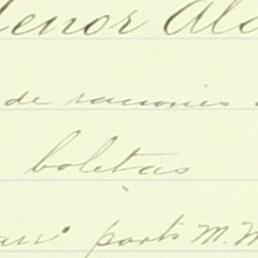 enor Al
de raciones
boletas
parts M. M